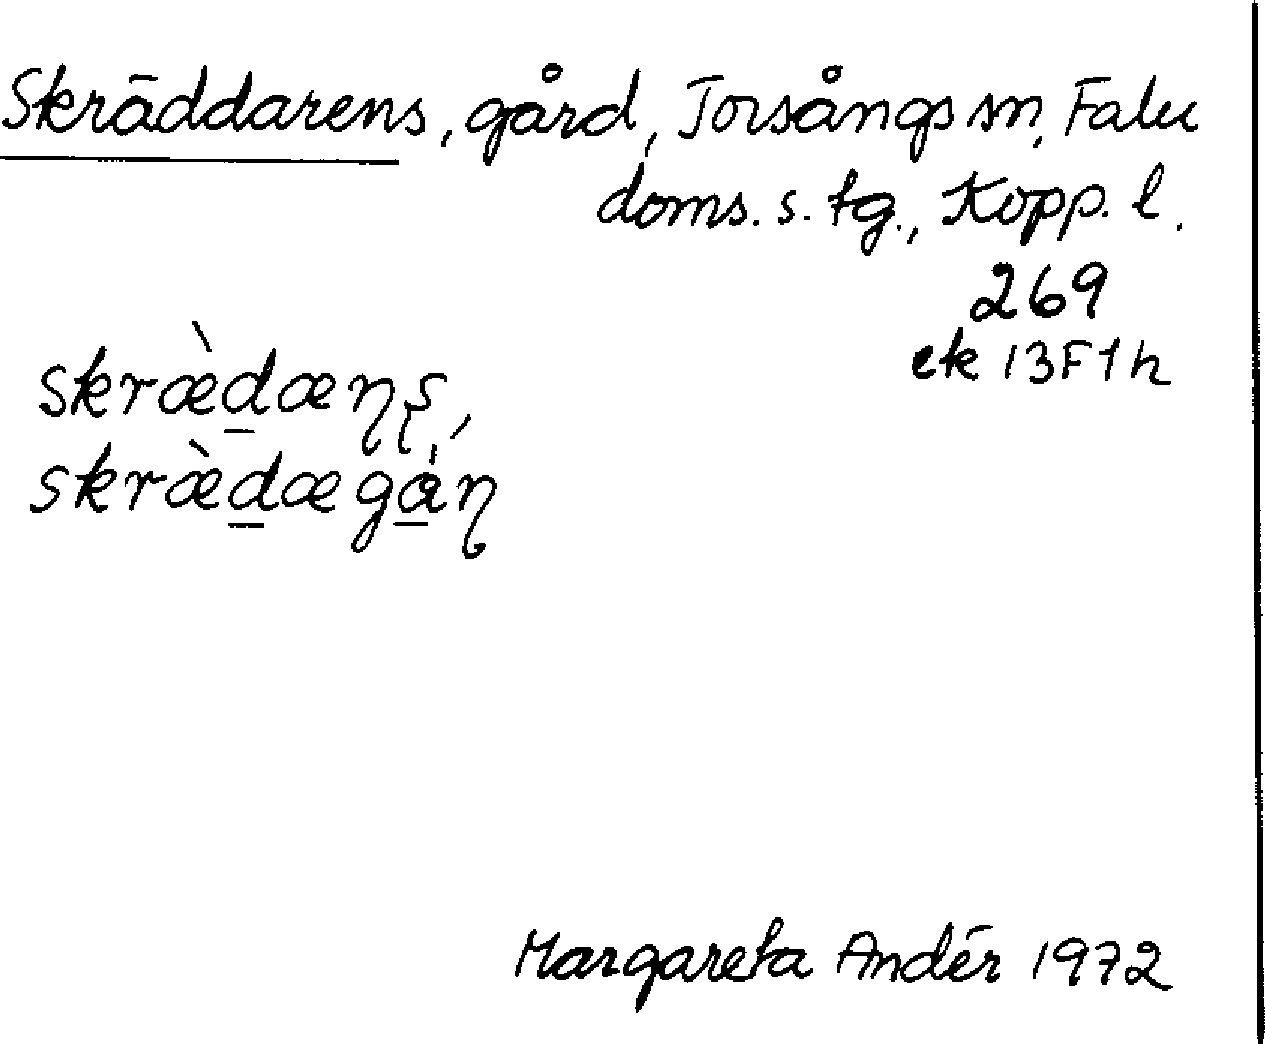 Skräddarens, gård, Torsångs sn, Falu
doms. s. tg., Kopp. l.
269
ek 13F1h
skræ̀d̲æɳʂ,
skræ̀d̲æga̲̍ɳ
Margareta Andér 1972